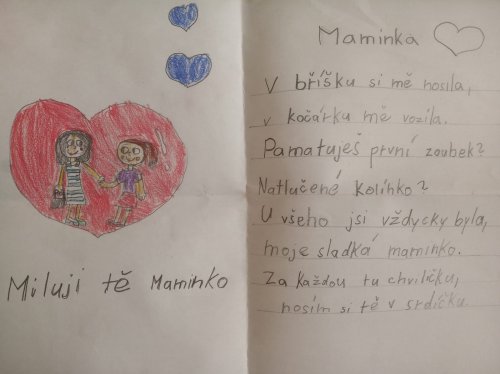 Miluji tě Maminko
Maminka
V bříšku si mě nosila,
v kočárku mě vozila.
Pamatuješ první zoubek?
Natlučené kolínko?
U všeho jsi vždycky byla,
moje sladká maminko.
Za každou tu chviličku,
nosím si tě v srdíčku.